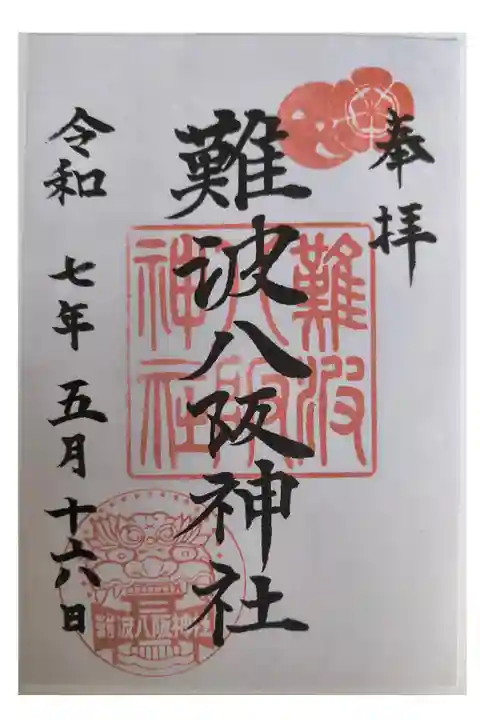 奉拝
難波八阪神社
令和 七年 五月 十六日
難波
八阪
神社
難波八阪神社